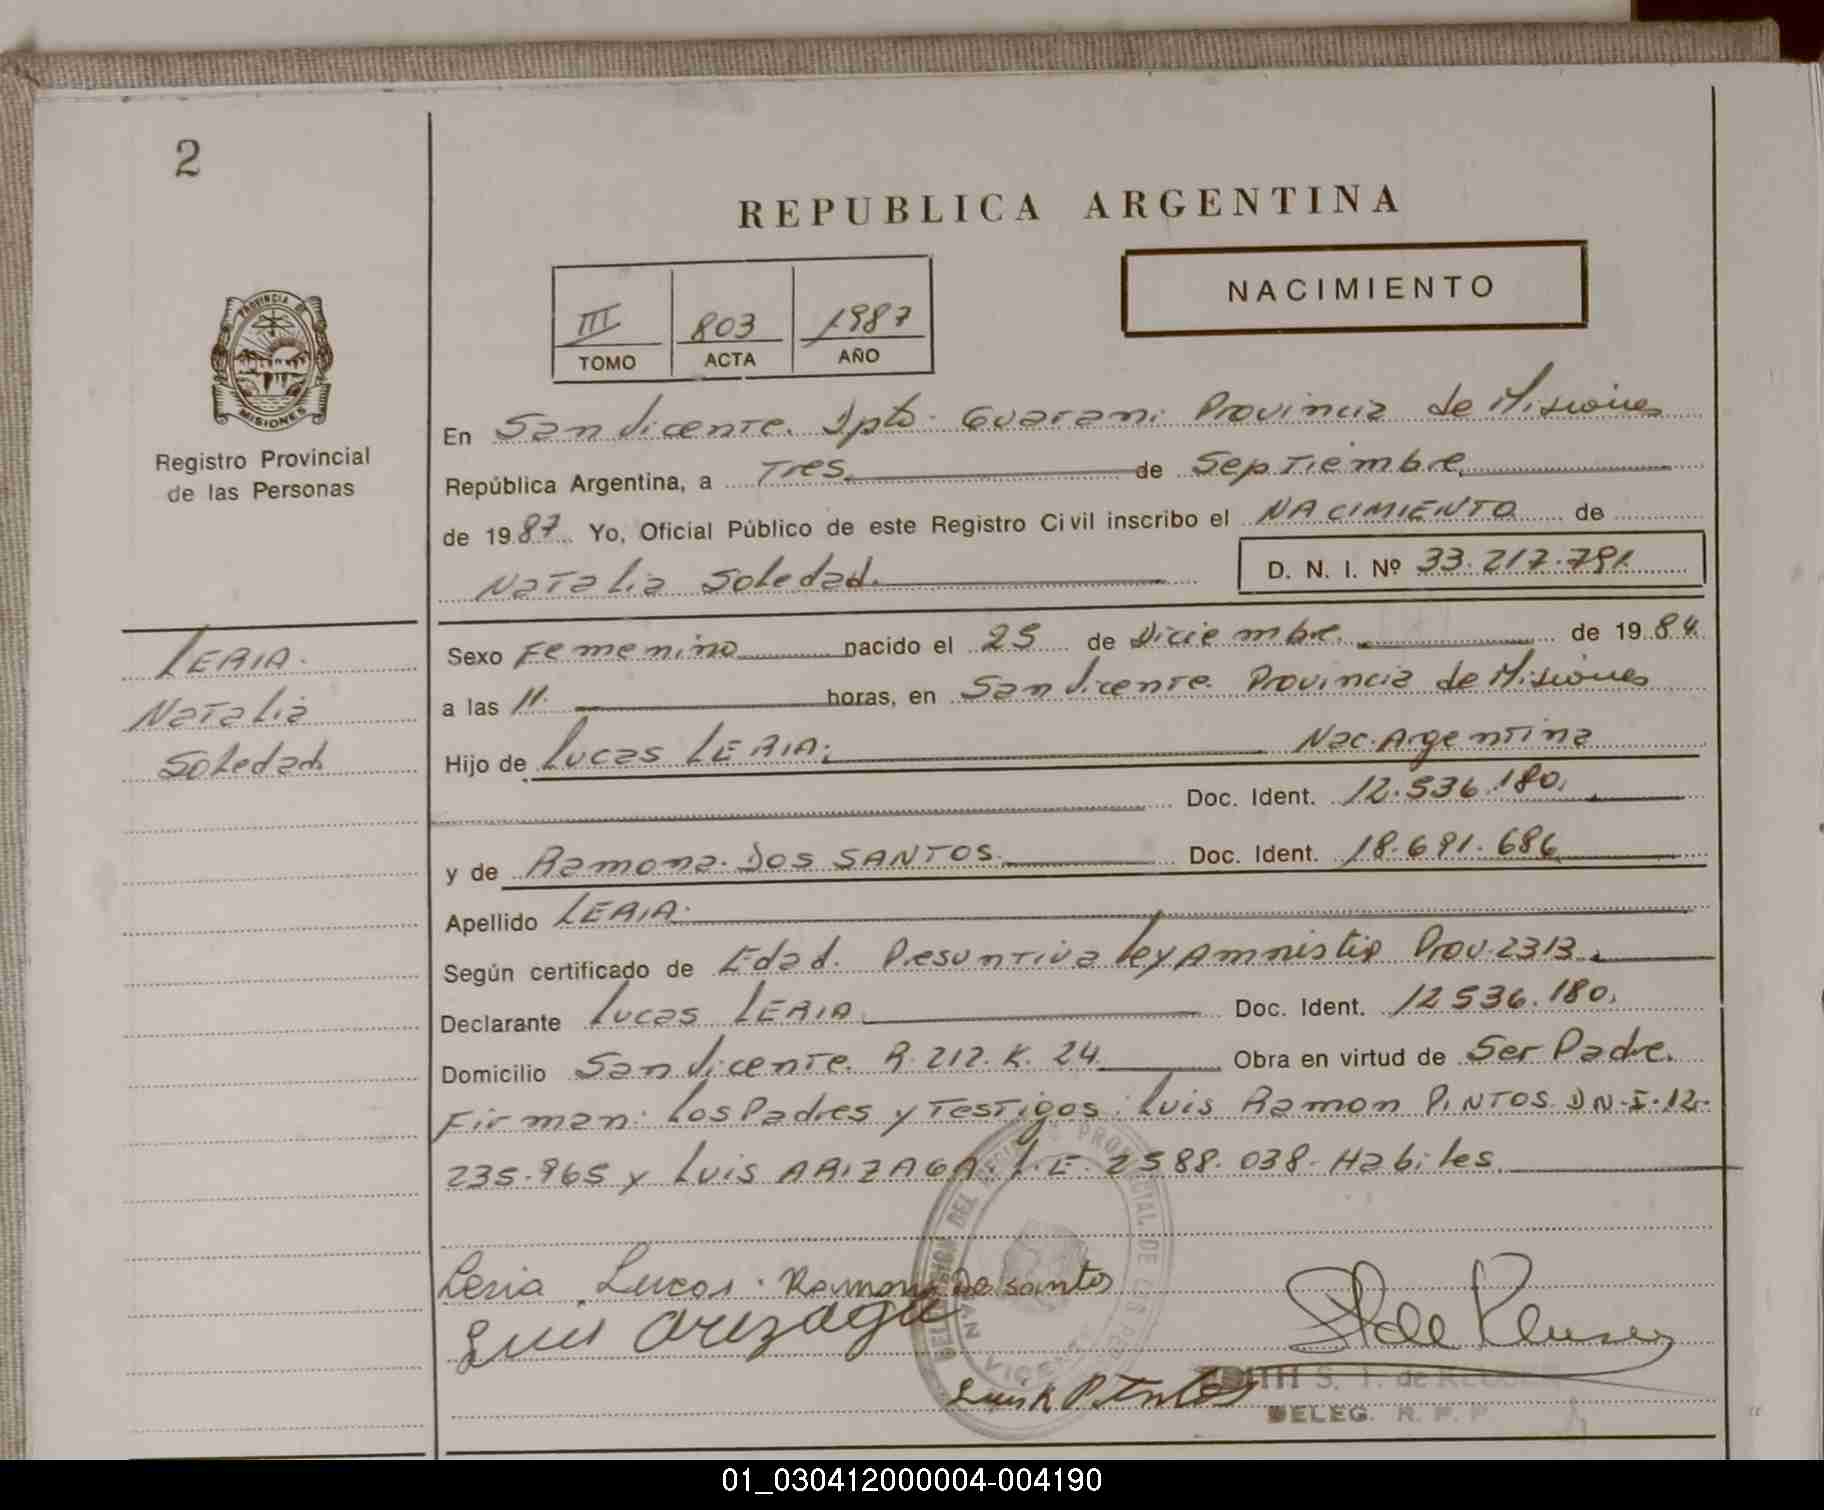 2
REPUBLICA ARGENTINA
NACIMIENTO
III 803 1987
TOMO ACTA AÑO
PROVINCIA DE
MISIONES
Registro Provincial
de las Personas
En San Vicente. Dpto. Guarani Provincia de Misiones
República Argentina, a Tres de Septiembre
de 1987. Yo, Oficial Público de este Registro Civil inscribo el NACIMIENTO de
Natalia Soledad. D. N. I. Nº 33.217.791
LERIA.
Natalia
Soledad
Sexo Femenino nacido el 25 de Diciembre. de 1984.
a las 11. horas, en San Vicente. Provincia de Misiones
Hijo de Lucas LERIA. Nac. Argentina
Doc. Ident. 12.536.180.
y de Ramona. DOS SANTOS. Doc. Ident. 18.691.686
Apellido LERIA.
Según certificado de Edad. Presuntiva Ley Amnistia Prov. 2313.
Declarante Lucas LERIA Doc. Ident. 12536.180.
Domicilio San Vicente. R. 212. K. 24 Obra en virtud de Ser Padre.
Firman: Los Padres y Testigos: Luis Ramon PINTOS D N-I-12-
235.965 y Luis ARIZAGA. L.E. 2588.038- Habiles.
Leria Lucas. Ramona Dosantos
Luis Arizaga
Luis R Pintos
EDITH S. I. de
DELEG. R. P. P
01_030412000004-004190